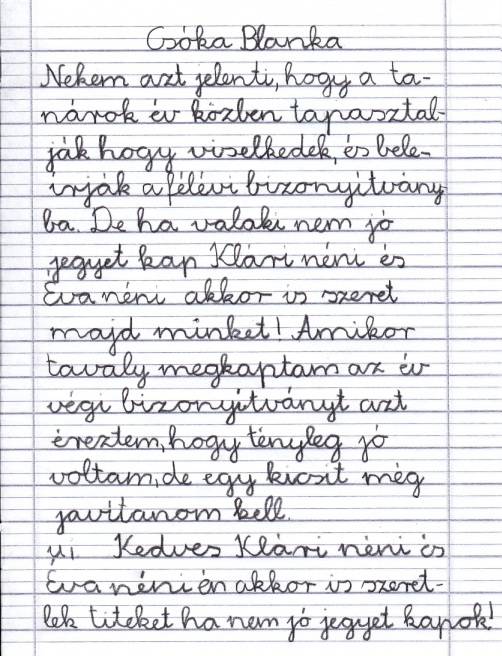 Csóka Blanka
Nekem azt jelenti, hogy a ta-
nárok év közben tapasztal-
ják hogy viselkedek, és bele-
írják a félévi bizonyítvány
ba. De ha valaki nem jó
jegyet kap Klári néni és
Éva néni akkor is szeret
majd minket! Amikor
tavaly megkaptam az év
végi bizonyítványt azt
éreztem, hogy tényleg jó
voltam, de egy kicsit még
javítanom kell.
Ui Kedves Klári néni és
Éva néni én akkor is szeret-
lek titeket ha nem jó jegyet kapok!